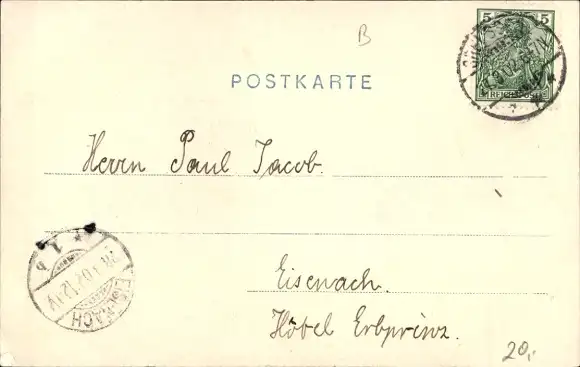 B
5 5
REICHSPOST
POSTKARTE
Herrn Paul Jacob.
EISENACH
Eisenach.
Hôtel Erbprinz.
20,-